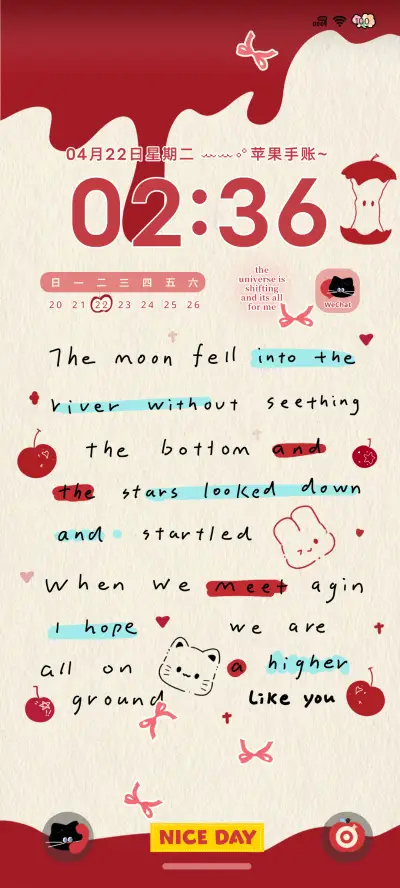 100
04月22日星期二 苹果手账~
02:36
日 一 二 三 四 五 六
20 21 22 23 24 25 26
the
universe is
shifting
and its all
for me
WeChat
The moon fell into the
river without seething
the bottom and
the stars looked down
and startled
When we meet agin
I hope we are
all on a higher
ground like you
NICE DAY